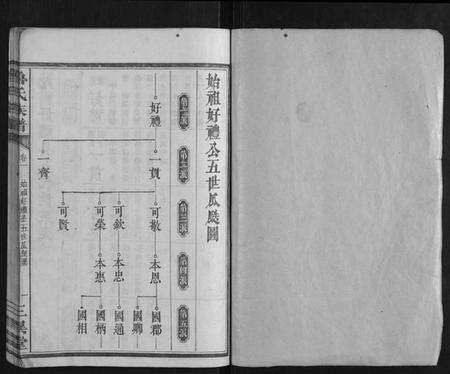 始祖好禮公五世瓜瓞圖
第一派
第二派
第三派
第四派
第五派
好禮
一貫
一齊
可敬
可欽
可榮
可賢
本恩
本忠
本惠
國郡
國卿
國通
國柄
國相
氏族譜
卷
始祖好禮公五世瓜瓞圖
一
三異堂